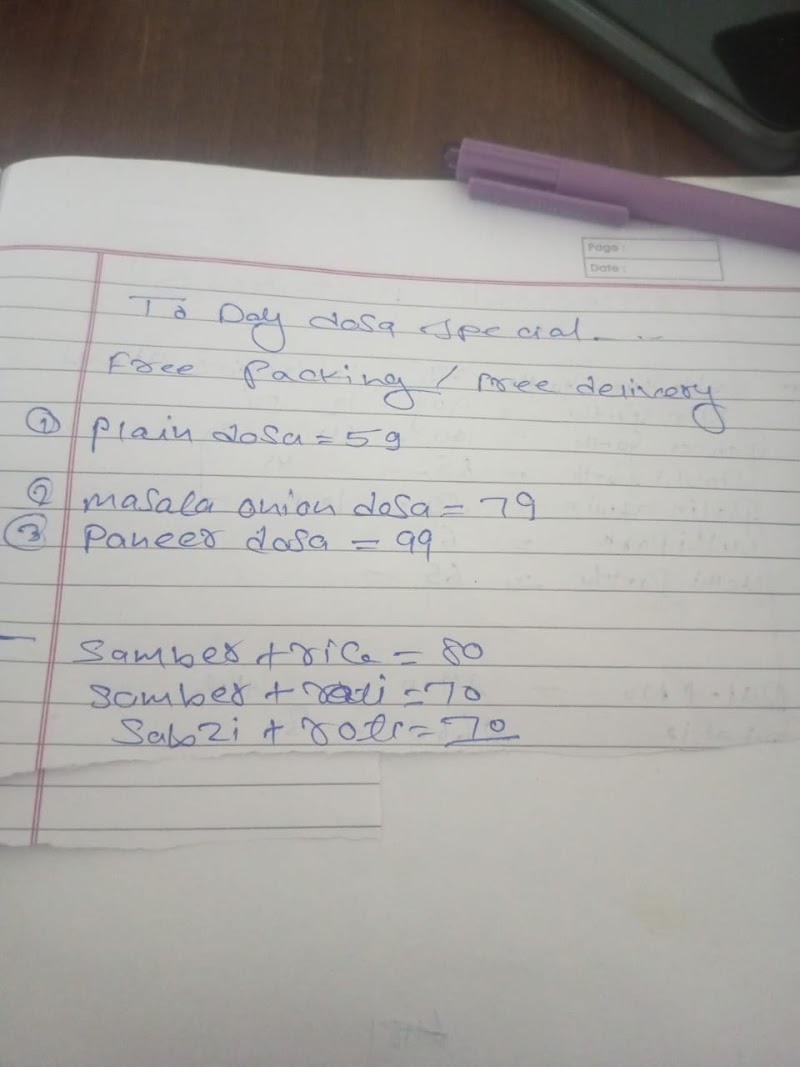 Page :
Date :
To Day dosa special....
Free Packing / Free delivery
① Plain dosa = 59
② masala onion dosa = 79
③ Paneer dosa = 99
Samber + rice = 80
Samber + roti = 70
Sabzi + roti = 70